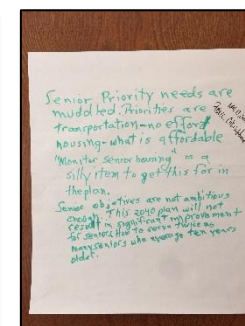 Senior Priority needs are
muddled. Priorities are
transportation-no effort
housing-what is affordable
"Monitor Senior housing" is a
silly item to get this for in
the plan.
Senior objectives are not ambitious
enough. This 2040 plan will not
result in significant improvement
for seniors
many seniors who average ten years
older.